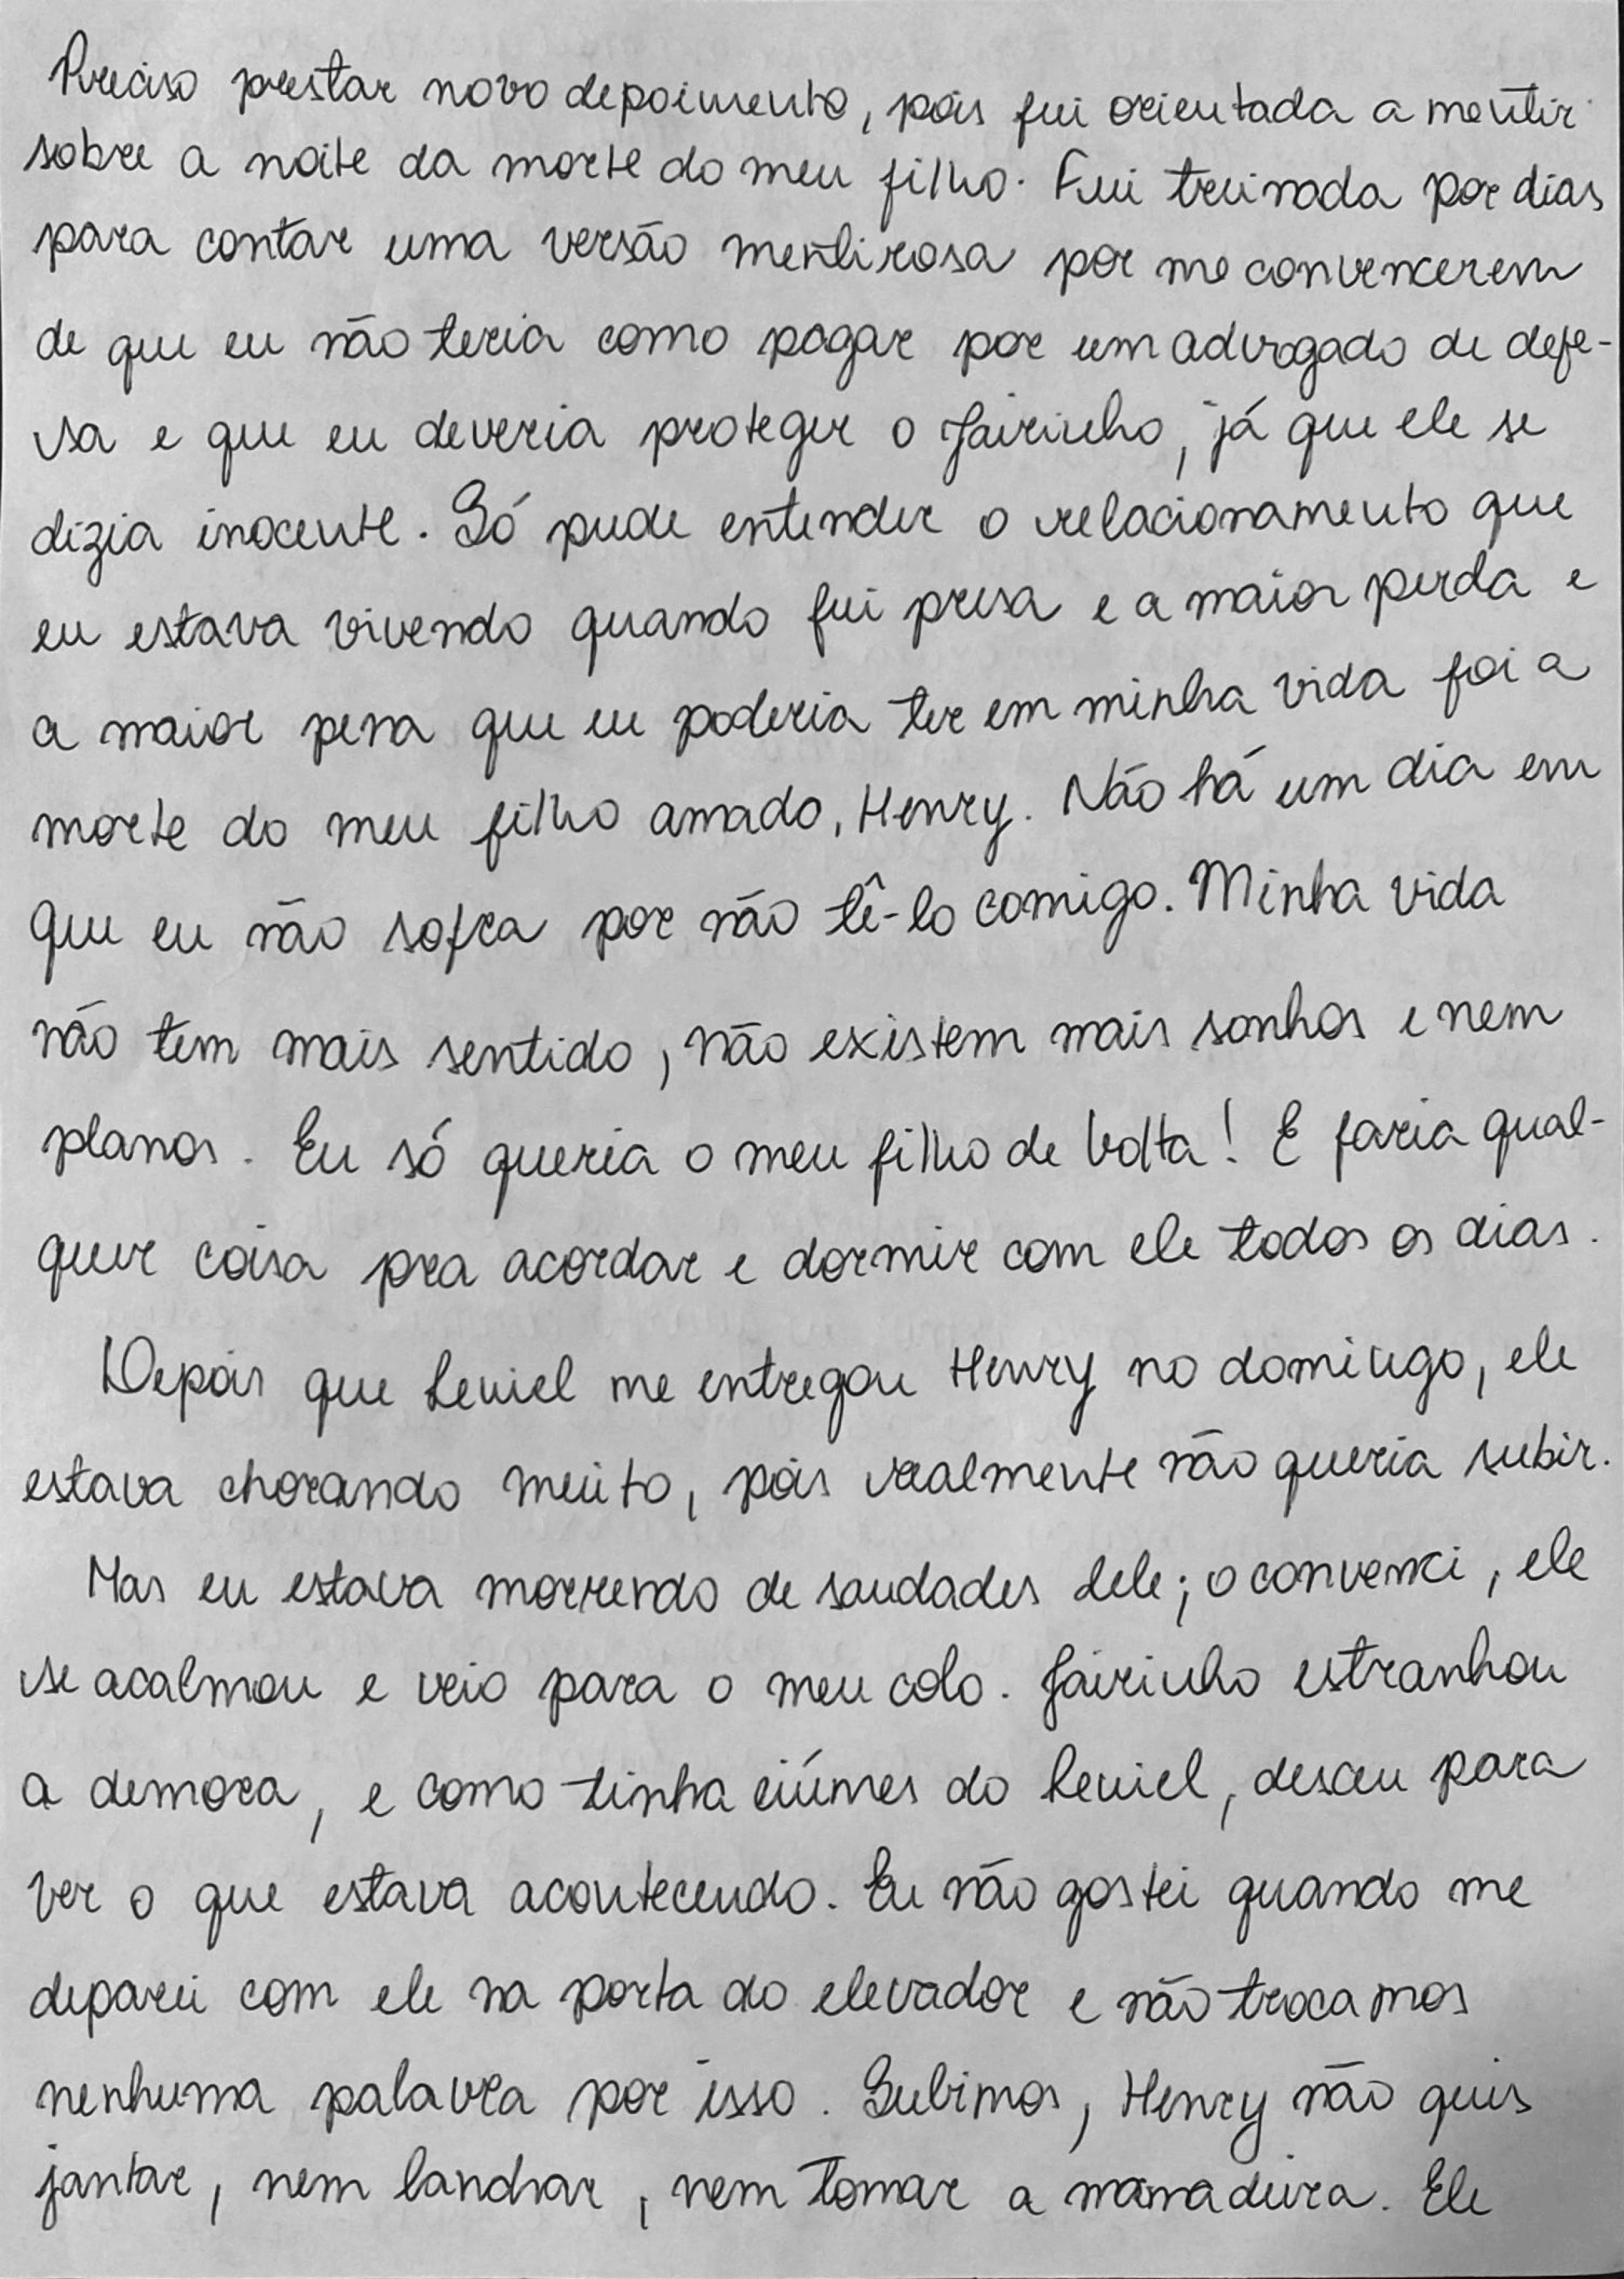 Preciso prestar novo depoimento, pois fui orientada a mentir
sobre a noite da morte do meu filho. Fui treinada por dias
para contar uma versão mentirosa por me convencerem
de que eu não teria como pagar por um advogado de defe-
sa e que eu deveria proteger o Jairinho, já que ele se
dizia inocente. Só pude entender o relacionamento que
eu estava vivendo quando fui presa e a maior perda e
a maior pena que eu poderia ter em minha vida foi a
morte do meu filho amado, Henry. Não há um dia em
que eu não sofra por não tê-lo comigo. Minha vida
não tem mais sentido, não existem mais sonhos e nem
planos. Eu só queria o meu filho de volta! E faria qual-
quer coisa pra acordar e dormir com ele todos os dias.
Depois que Leniel me entregou Henry no domingo, ele
estava chorando muito, pois realmente não queria subir.
Mas eu estava morrendo de saudades dele; o convenci, ele
se acalmou e veio para o meu colo. Jairinho estranhou
a demora, e como tinha ciúmes do Leniel, desceu para
ver o que estava acontecendo. Eu não gostei quando me
deparei com ele na porta do elevador e não trocamos
nenhuma palavra por isso. Subimos, Henry não quis
jantar, nem lanchar, nem tomar a mamadeira. Ele